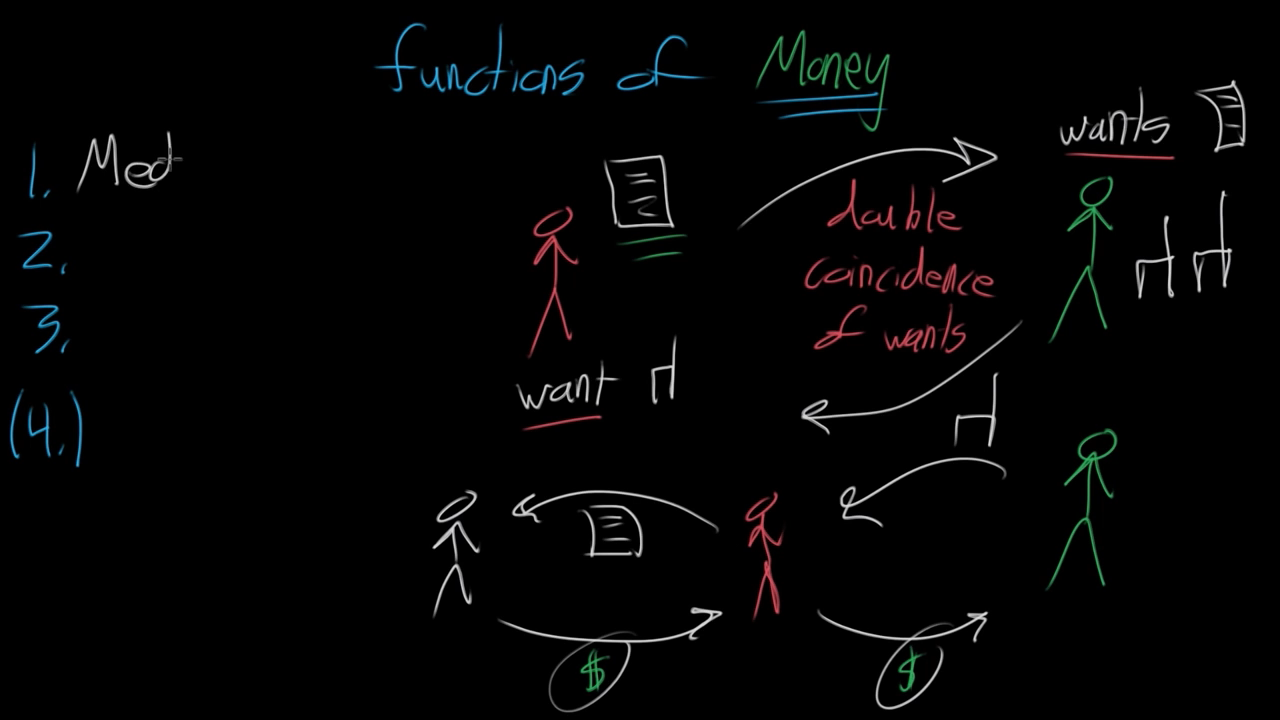 functions of Money
1. Med
2.
3.
(4.)
wants
double
coincidence
of wants
want
$
$